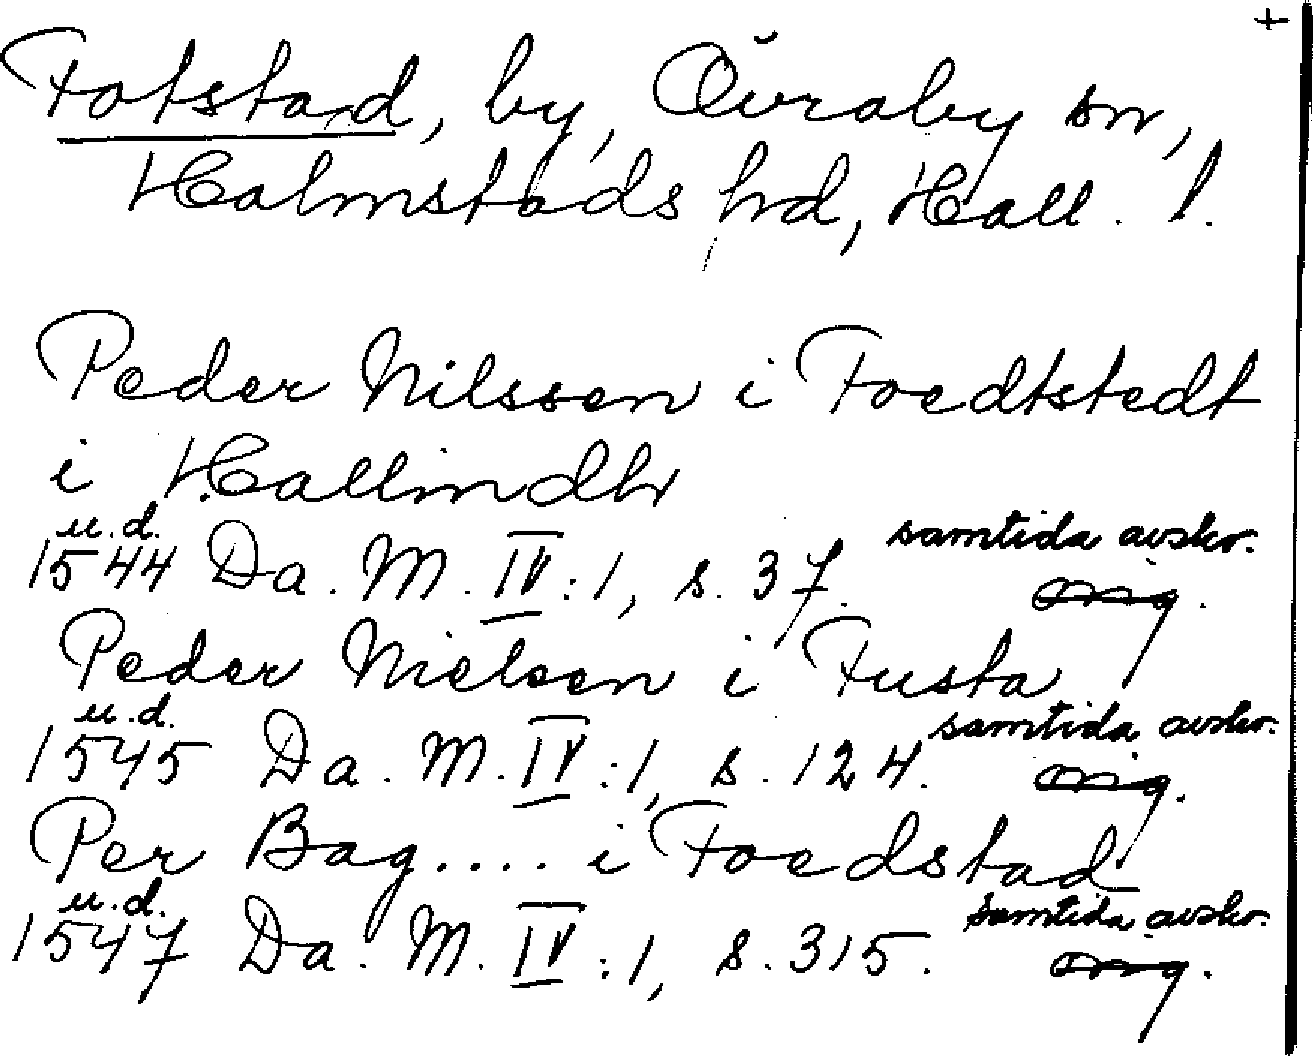 +
Fotstad, by, Övraby sn,
Halmstads hd, Hall. l.
Peder Nilssen i Foedtstedt
i Hallindh
u.d. samtida avskr.
1544 Da. M. IV:1, s. 37. orig.
Peder Nielsen i Fusta
u.d. samtida avskr.
1545 Da. M. IV:1, s. 124. orig.
Per Bag.... i Foedstad
u.d. samtida avskr.
1547 Da. M. IV:1, s. 315. orig.